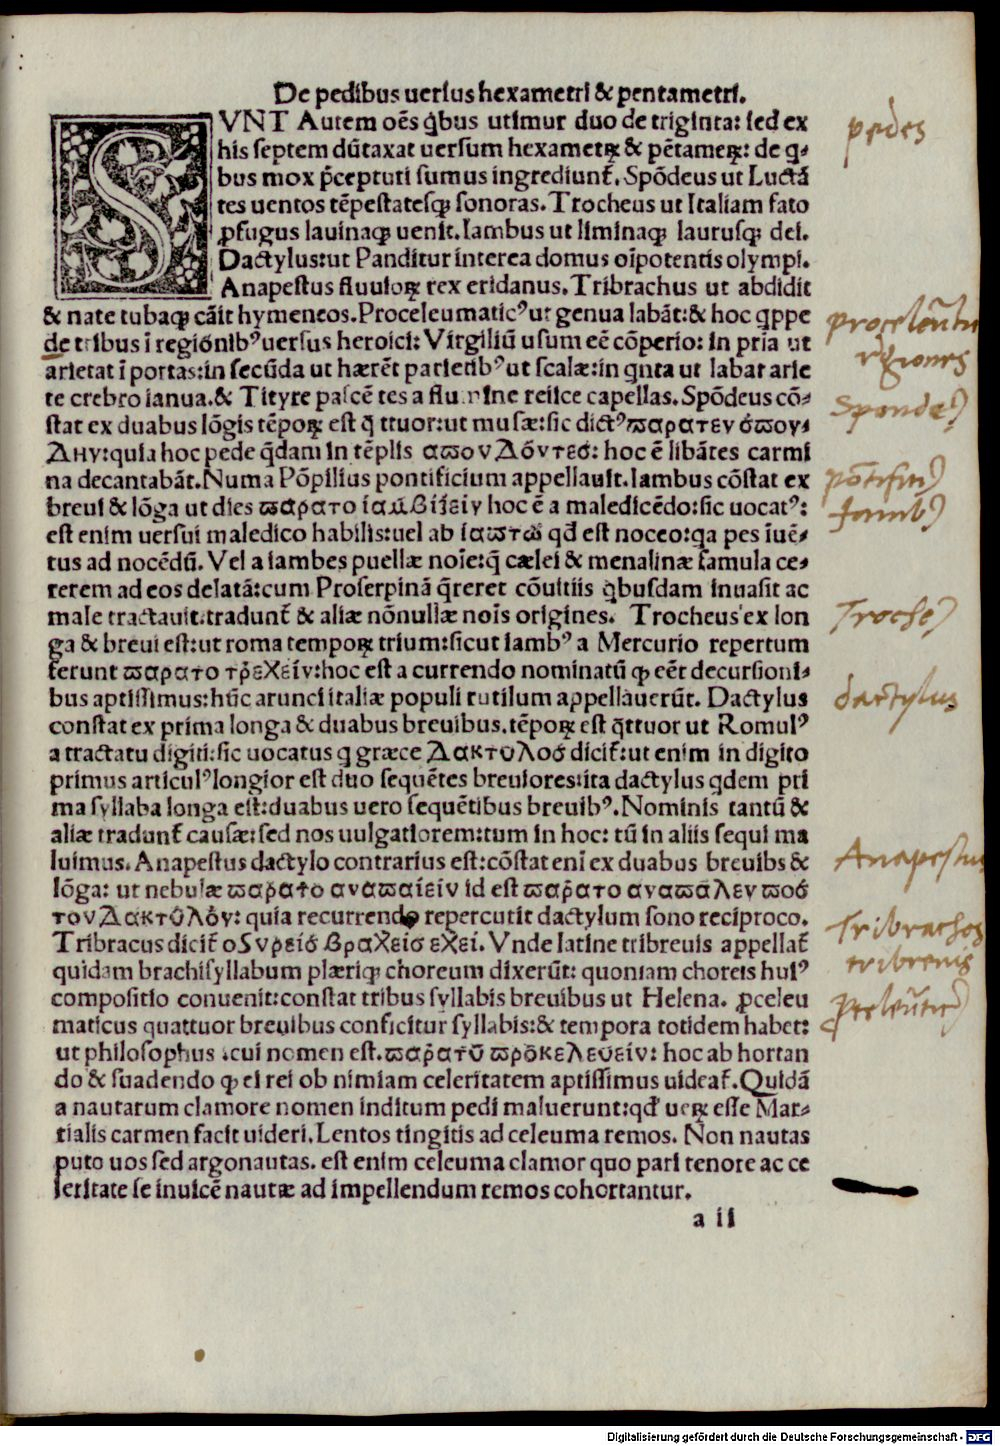 De pedibus uersus hexametri & pentametri.
SVNT Autem oēs q̇bus utimur duo de triginta: sed ex
his septem dūtaxat uersum hexametꝝ & pētametꝝ: de q-
bus mox p̄cepturi sumus ingrediunt̄. Spōdeus ut Luctā
tes uentos tēpestatesqꝫ sonoras. Trocheus ut Italiam fato
ꝓfugus lauinaqꝫ uenit. Iambus ut liminaqꝫ laurusqꝫ dei.
Dactylus: ut Panditur interea domus oīpotentis olympi.
Anapestus fluuioꝝ rex eridanus. Tribrachus ut abdidit
& nate tubaqꝫ cāit hymeneos. Proceleumaticꝰ ut genua labāt: & hoc q̇ppe
de tribus ī regionibꝰ uersus heroici: Virgiliū usum eē cōperio: in pria ut
arietat ī portas: in secūda ut hærēt parietibꝰ ut scalæ: in q̇nta ut labat arie
te crebro ianua. & Tityre pascē tes a flumine reiice capellas. Spōdeus cō-
stat ex duabus lōgis tēpoꝝ est q̄ ttuor: ut musæ: sic dictꝰ ϖαρατεν σϖον-
Δην: quia hoc pede q̇dam in tēplis αϖονΔόντεσ: hoc ē libātes carmi
na decantabāt. Numa Pōpilius pontificium appellauit. Iambus cōstat ex
breui & lōga ut dies ϖαρατο ἰαμβίζειν hoc ē a maledicēdo: sic uocatꝰ:
est enim uersui maledico habilis: uel ab ἰαϖτῶ qd̄ est noceo: qa pes iuē-
tus ad nocēdū. Vel a iambes puellæ noīe: q̄ cælei & menalinæ famula ce-
rerem ad eos delatā: cum Proserpinā q̄reret cōuitiis q̇busdam inuasit ac
male tractauit. tradunt̄ & aliæ nōnullæ noīs origines. Trocheus ex lon
ga & breui est: ut roma tempoꝝ trium: sicut iambꝰ a Mercurio repertum
ferunt ϖαρατο τρέχείν: hoc est a currendo nominatū qꝫ eēt decursioni-
bus aptissimus: hūc arunci italiæ populi rutilum appellauerūt. Dactylus
constat ex prima longa & duabus breuibus. tēpoꝝ est q̄ttuor ut Romulꝰ
a tractatu digiti: sic uocatus q græce Δακτυλοσ dicit̄: ut enim in digito
primus articulꝰ longior est duo sequētes breuiores: ita dactylus q̇dem pri
ma syllaba longa est: duabus uero sequētibus breuibꝰ. Nominis tantū &
aliæ tradunt̄ causæ: sed nos uulgatiorem: tum in hoc: tū in aliis sequi ma
luimus. Anapestus dactylo contrarius est: cōstat enī ex duabus breuibs &
lōga: ut nebulæ ϖαρατο αναϖαίειν id est ϖαρατο αναϖαλεν ϖοσ
τον Δακτυλον: quia recurrendo repercutit dactylum sono reciproco.
Tribracus dicit̄ ο Συρεισ βραχεισ εχει. Vnde latine tribreuis appellat̄
quidam brachisyllabum plæriqꝫ choreum dixerūt: quoniam choreis huiꝰ
compositio conuenit: constat tribus syllabis breuibus ut Helena. ꝓceleu
maticus quattuor breuibus conficitur syllabis: & tempora totidem habet:
ut philosophus .cui nomen est. ϖαρατȣ ϖροκελευειν: hoc ab hortan
do & suadendo qꝫ ei rei ob nimiam celeritatem aptissimus uideat̄. Quidā
a nautarum clamore nomen inditum pedi maluerunt: qd̄ ueꝝ esse Mar-
tialis carmen facit uideri. Lentos tingitis ad celeuma remos. Non nautas
puto uos sed argonautas. est enim celeuma clamor quo pari tenore ac ce
leritate se inuicē nautæ ad impellendum remos cohortantur.
a ii
pedes
proceleūtic
regiones
Spondeꝰ
pōtifitiꝰ
Iambꝰ
Trocheꝰ
dactylus
Anapestus
Tribrachos
tribreuis
ꝓceleūticꝰ
Digitalisierung gefördert durch die Deutsche Forschungsgemeinschaft - DFG